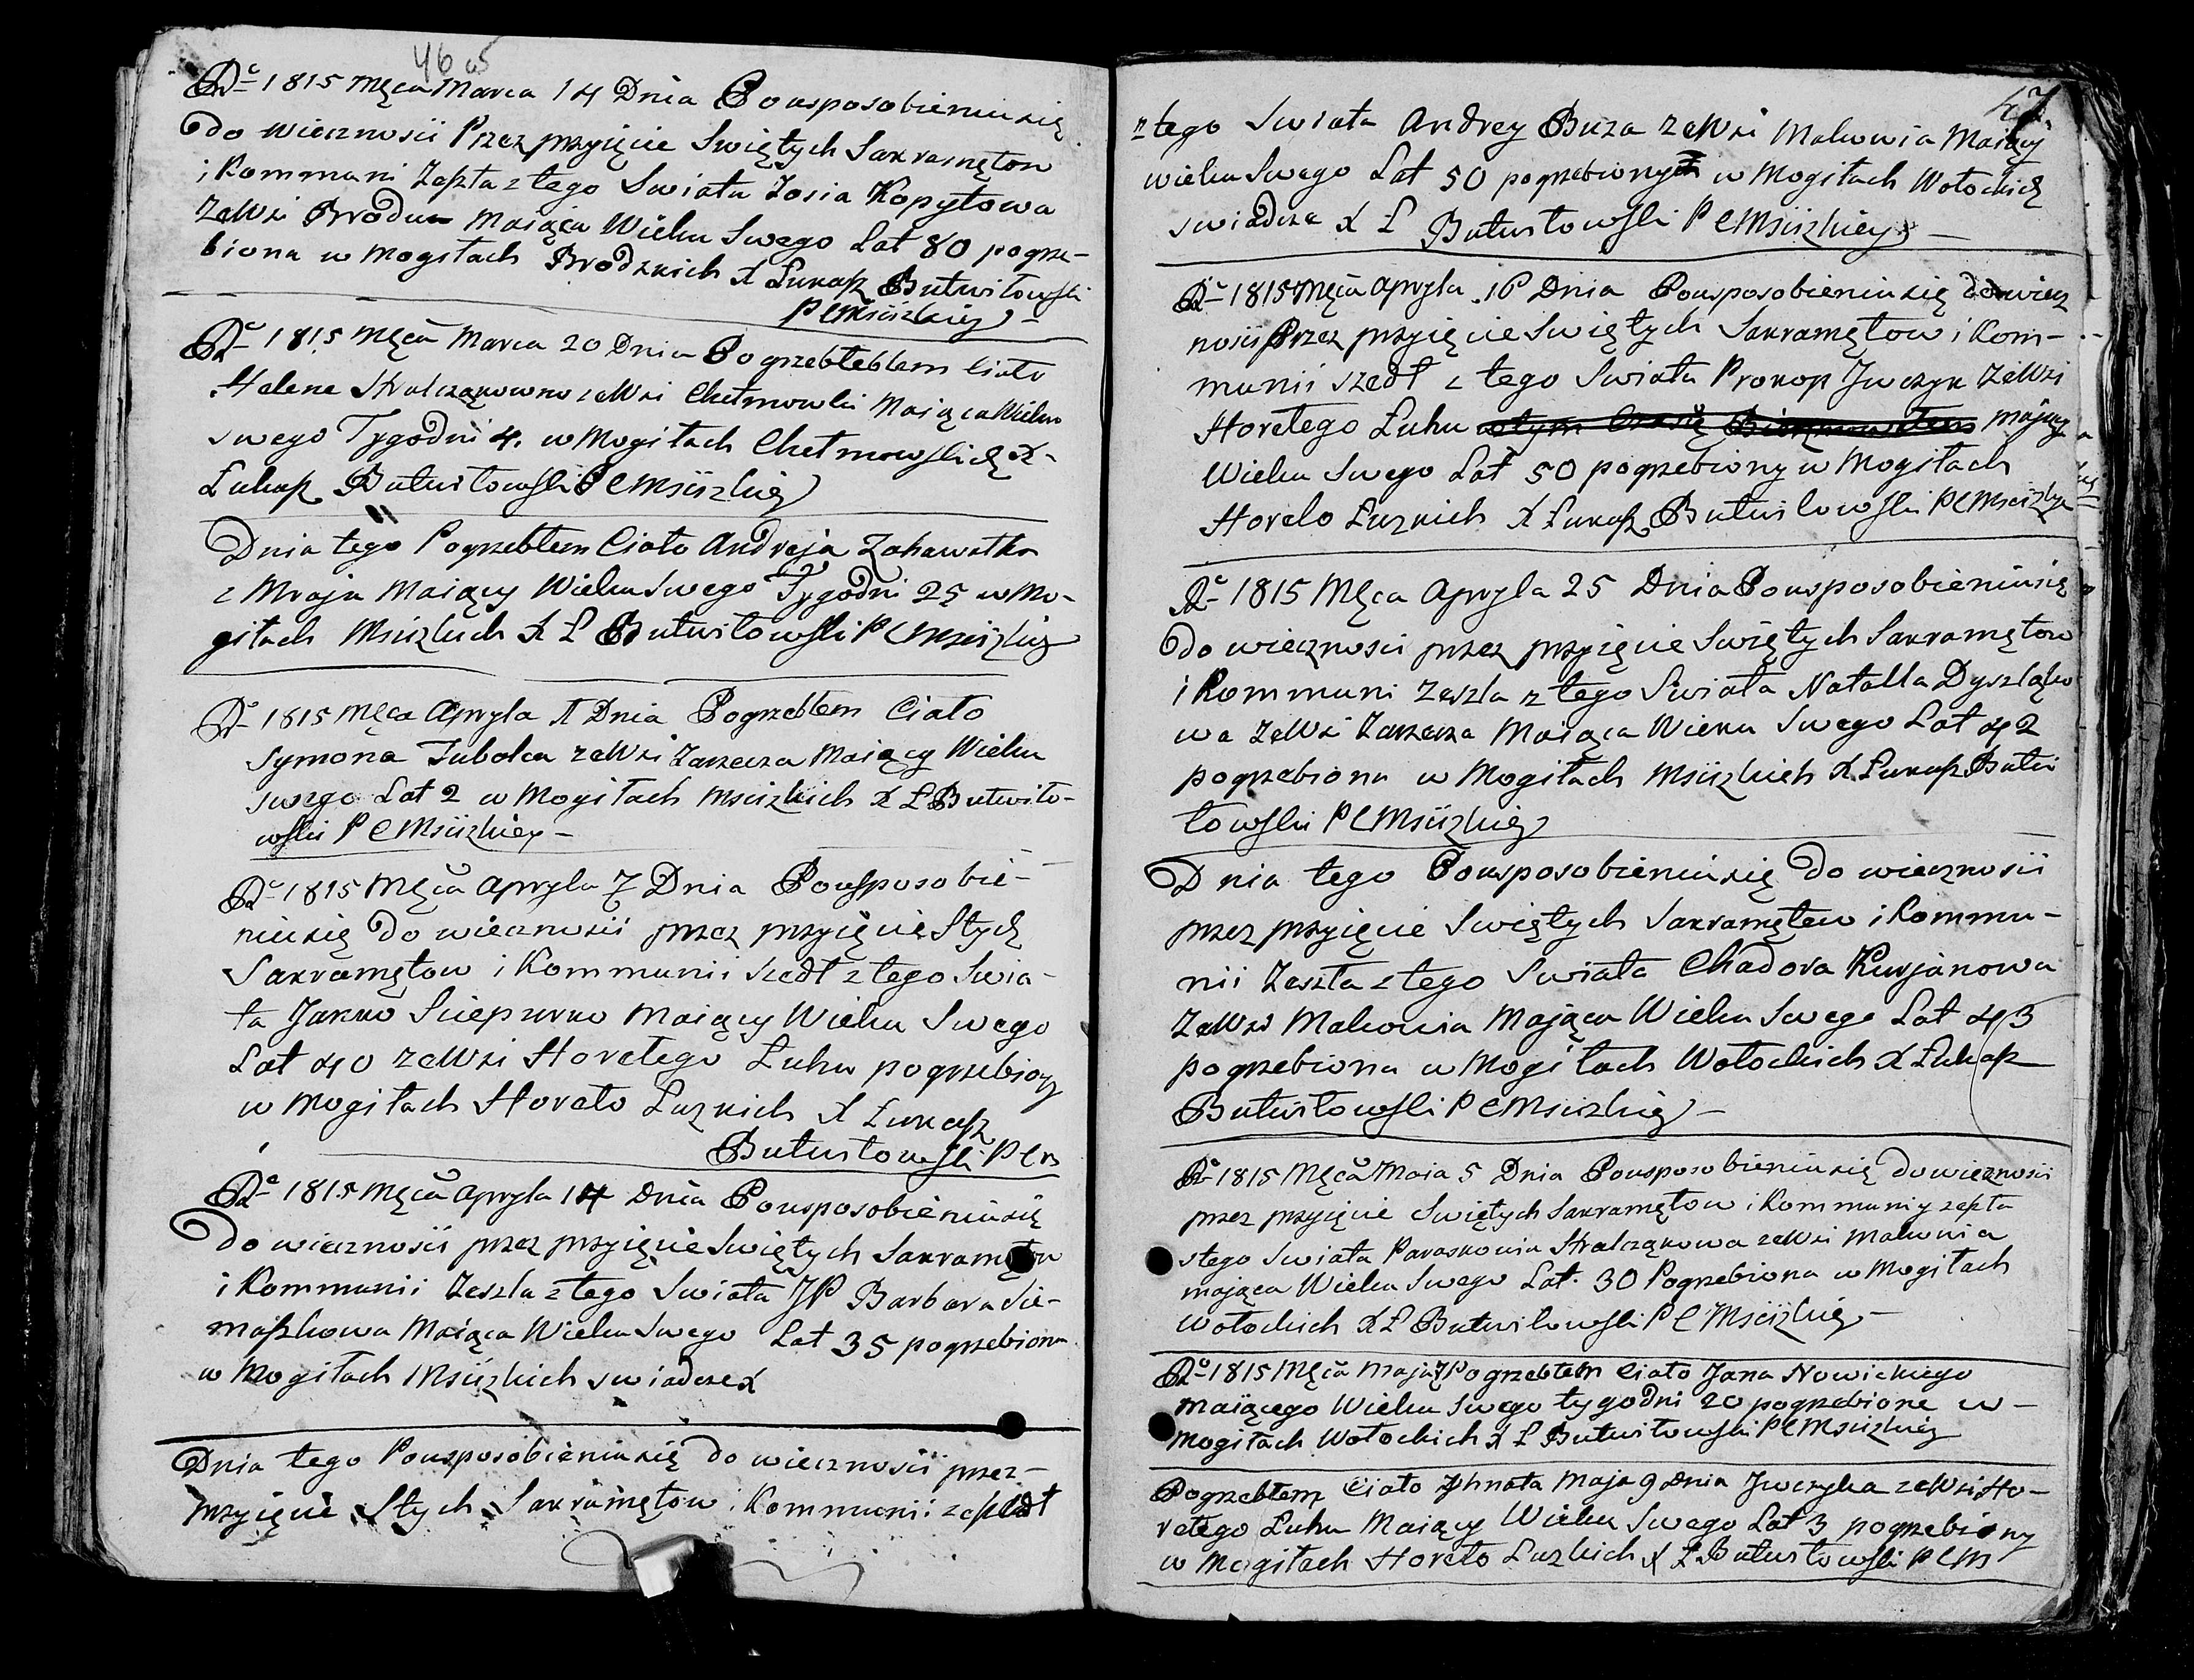 46 v
Rc 1815 Męca Marca 14 Dnia Pousposobieniusię
do wiecznosii Przez przyięcie Swiętych Sakramętow
i Kommuni Zeszła z tego Swiata Zosia Kopytowa
ZeWsi Brodu Maiąca Wieku Swego Lat 80 pogrze-
biona w Mogiłach Brodzkich X Łukasz Butwiłowski
P C Msiizkiey -
Rc 1815 Męca Marca 20 Dnia Pogrzebłebłem Ciało
Helene Stralcząkowno zeWsi Chełmowki Maiąca Wieku
swego Tygodni 4. w Mogiłach Chełmowskich X-
Łukasz Butwiłowski P C Msiizkiey
Dnia tego Pogrzebłem Ciało Andreja Zahawałka
z Mroja Maiący Wieku Swego Tygodni 25 w Mo-
giłach Msiizkich X Ł Butwiłowski P C Msiizkiey
Rc 1815 Męca Apryla 1 Dnia Pogrzebłem Ciało
Symona Jubolca zeWsi Zarzecza Maiący Wieku
swego Lat 2 w Mogiłach Mscizkich X Ł Butwiło-
wski P C Msiizkiey -
Rc 1815 Męca Apryla 7 Dnia Pousposobie-
niusię Do wiecznosii przez przyięcie Stych
Sakramętow i Kommunii szedł z tego Swia-
ta Jakko Sciepurko Maiący Wieku Swego
Lat 40 zeWsi Horełego Łuhu pogrzebiony
w Mogiłach Horeło Łuzkich X Łukasz
Butwiłowski P C M
Rc 1815 Męca Apryla 14 Dnia Pousposobieniusię
Do wiecznosii przez przyięcie Swiętych Sakramętow
i Kommunii Zeszla z tego Swiata JP Barbara Sie-
maszkowa Maiąca Wieku Swego Lat 35 pogrzebiona
w Mogiłach Msiizkich swiadcze X
Dnia tego Pousposobieniusię do wiecznosii przez-
przyięcie Stych Sakramętow i Kommunii zeszedł
47.
z tego Swiata Andrey Buza zeWsi Makowia Maiący
wieku Swego Lat 50 pogrzebiony w Mogiłach Wołockich
swiadcze X Ł Butwiłowski P C Msiizkiey -
Rc 1815 Męca Apryla 16 Dnia Pousposobieniusię dowiecz
nosii Przez przyięcie Swiętych Sakramętow i Kom-
munii szedł z tego Swiata Prokop Jwczyk ZeWsi
Horełego Łuhu mający
Wieku Swego Lat 50 pogrzebiony w Mogiłach
Horelo Łuzkich X Łukasz Butwilowski P C Msciizkiey
Rc 1815 Męca Apryla 25 Dnia Pousposobieniusię
do wiecznosci przez przyięcie Swiętych Sakramętow
i Kommuni Zeszla z tego Swiata Natalla Dyszląko
wa ZeWsi Zarzecza Maiąca Wieku Swego Lat 42
pogrzebiona w Mogiłach Msiizkich X Łukasz Butwi
łowski P C Msiizkiey
Dnia tego Pousposobieniusię Do wiecznosii
przez przyięcie Swiętych Sakramętow i Kommu-
nii Zeszła z tego Swiata Chadora Kurjanowa
ZeWsi Makowia Mająca Wieku Swego Lat 43
pogrzebiona w Mogiłach Wołockich X Łukasz
Butwiłowski P C Msiizkiey -
Rc 1815 Męca Maia 5 Dnia Pousposobieniusię dowiecznosii
przez przyięcie Swiętych Sakramętow i Kommuniy zeszła
ztego Swiata Paraskowia Stralcząkowa zeWsi Makowia
mająca Wieku Swego Lat. 30 Pogrzebiona w Mogiłach
Wołockich X Ł Butwiłowski P C Msciizkiey -
Rc 1815 Męca Maja 7 Pogrzebłem Ciało Jana Nowickiego
maiącego Wieku Swego tygodni 20 pogrzebione w-
Mogiłach Wołockich X Ł Butwiłowski P C Msiizkiey
Pogrzebłem Ciało Jhnata Maja 9 Dnia Jwczyka zeWsi Ho-
rełego Łuhu Maiący Wieku Swego Lat 3 pogrzebiony
w Mogiłach Horeło Łuzkich X Ł Butwiłowski P C M